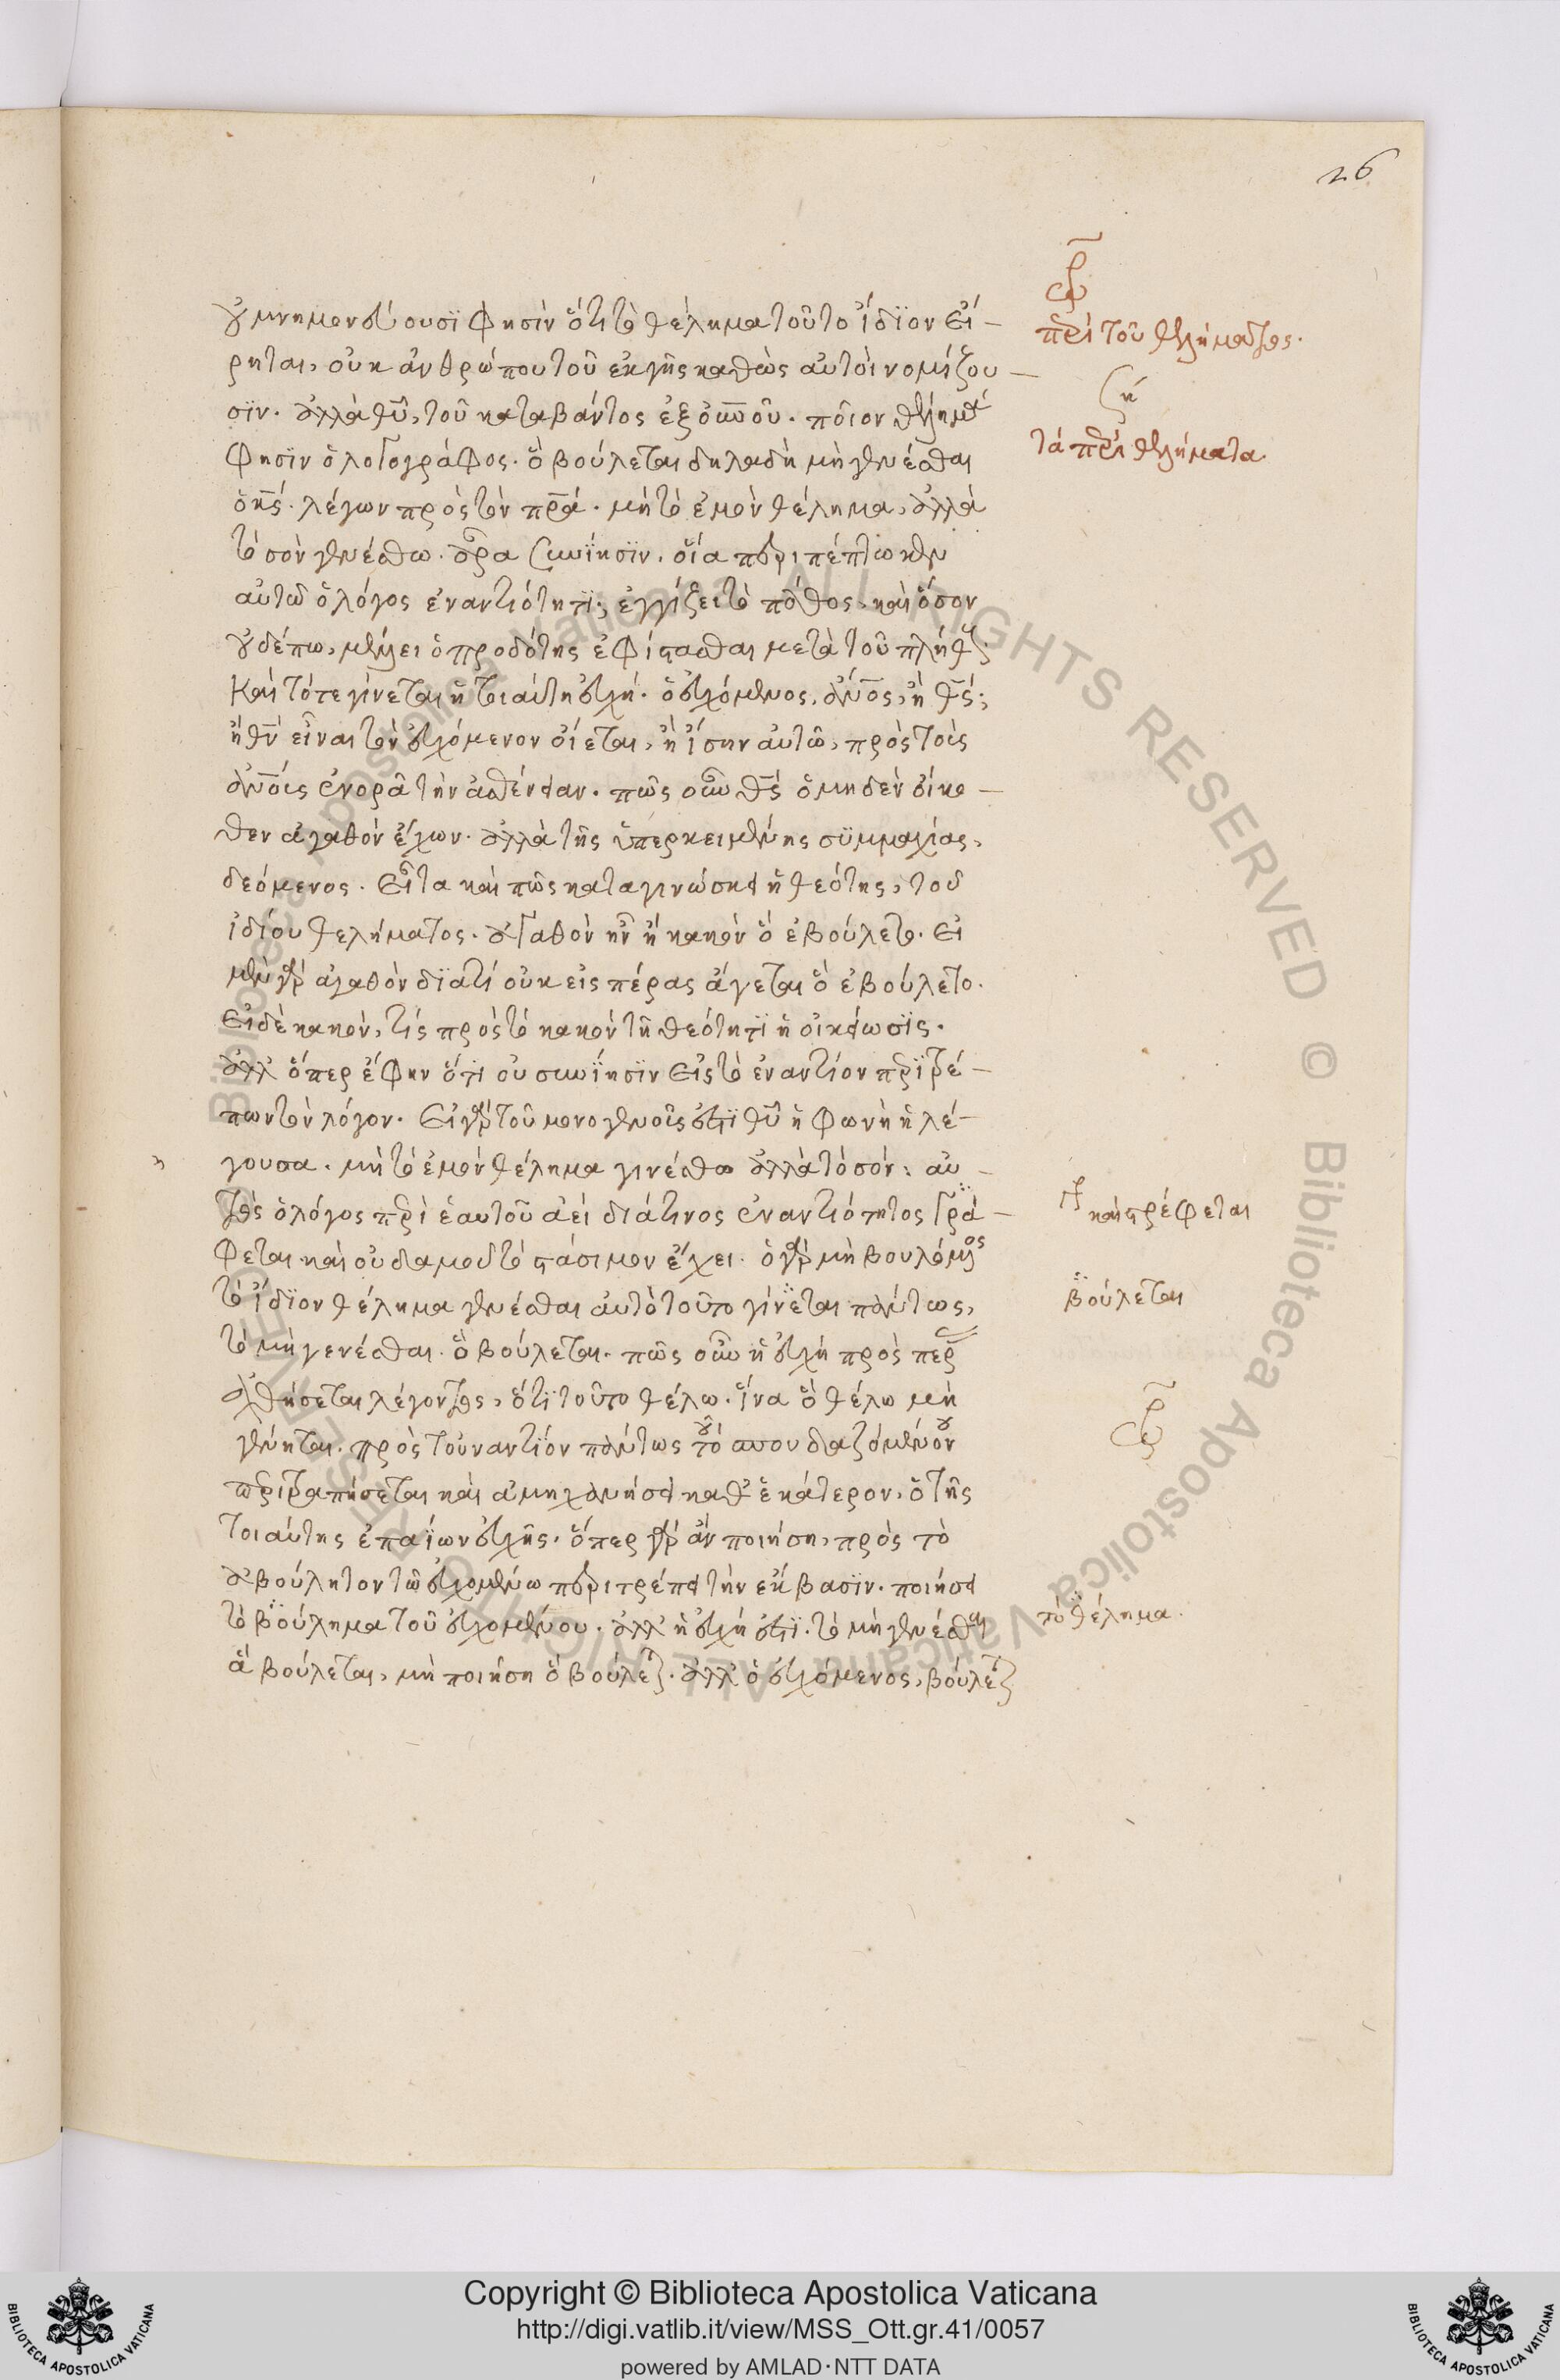 26
οὐ μνημονεύουσι φησὶν ὅτι τὸ θέλημα τοῦτο ἴδιον εἴ-
ρηται, οὐκ ἀνθρώπου τοῦ ἐκ γῆς καθὼς αὐτοὶ νομίζου-
σϊν. ἀλλὰ θῦ, τοῦ καταβάντος ἐξ οὐνοῦ. ποῖον θέλημα
φησὶν ὁ λογογράφος. ὃ βούλεται δηλαδὴ μὴ γενέσθαι
ὁ κς. λέγων πρὸς τὸν πρα. μὴ τὸ ἐμὸν θέλημα, ἀλλὰ
τὸ σὸν γενέσθω. ἆρα συνΐησϊν. οἵα περιπέπτωκεν
αὐτῶ ὁ λόγος ἐναντιότητϊ; ἐγγίζει τὸ πάθος, καὶ ὅσον
οὐδέπω, μέλλει ὁ προδότης ἐφίστασθαι μετὰ τοῦ πλήθους.
Καὶ τότε γίνεται ἡ τοιαύτη εὐχή. ὁ εὐχόμενος, ἄνος, ἢ θς;
ἢ θν εἶναι τὸν εὐχόμενον οἴεται, ἢ ἴσην αὐτῶ, πρὸς τοῖς
ἀνοις ἐνορᾶ τὴν ἀσθένειαν. πῶς οὖν θς ὁ μηδὲν οἴκο-
θεν ἀγαθὸν ἔχων. ἀλλὰ τῆς ὑπερκειμένης συμμαχίας,
δεόμενος. Εἶτα καὶ πῶς καταγινώσκει ἡ θεότης, τοῦ
ἰδίου θελήματος. ἀγαθὸν ἦν ἢ κακὸν ὃ ἐβούλετο. Εἰ
μὲν γὰρ ἀγαθὸν διατί οὐκ εἰς πέρας ἄγεται ὃ ἐβούλετο.
Εἰ δὲ κακὸν, τίς πρὸς τὸ κακὸν τῆ θεότητϊ ἡ οἰκείωσϊς.
ἀλλ' ὅπερ ἔφην ὅτι οὐ συνΐησϊν εἰς τὸ ἐναντίον περιτρέ-
πων τὸν λόγον. Εἰ γὰρ τοῦ μονογενοῦς ἐστϊ θῦ ἡ φωνὴ ἡ λέ-
γουσα. μὴ τὸ ἐμὸν θέλημα γινέσθω ἀλλὰ τὸ σόν: αὐ-
τὸς ὁ λόγος περὶ ἑαυτοῦ ἀεὶ διά τινος ἐναντιότητος γρά-
φεται καὶ οὐδαμοῦ τὸ στάσιμον ἔχει. ὁ γὰρ μὴ βουλόμενος
τὸ ἴδϊον θέλημα γενέσθαι αὐτὸ τοῦτο γίνεται πάντως,
τὸ μὴ γενέσθαι. ὃ βούλεται. πῶς οὖν ἡ εὐχὴ πρὸς περ
αχθήσεται λέγοντος, ὅτϊ τοῦτο θέλω. ἵνα ὃ θέλω μὴ
γένηται. πρὸς τοὐναντϊόν πάντως τὸ σπουδαζόμενον
περιτραπήσεται καὶ ἀμηχανήσει καθ' ἑκάτερον, ὁ τῆς
τοιαύτης ἐπαΐων εὐχῆς. ὅπερ γὰρ ἂν ποιήση, πρὸς τὸ
ἀβούλητον τῶ εὐχομένω περιτρέπει τὴν ἔκβασϊν. ποιήσει
τὸ βούλημα τοῦ εὐχομένου. ἀλλ' ἡ εὐχή ἐστϊ. τὸ μὴ γενέσθαι
ἃ βούλεται, μὴ ποιήση ὃ βούλεται. ἀλλ' ὁ εὐχόμενος, βούλεται
περὶ τοῦ θελήματος.
ζή
τὰ περὶ θελήματα
καὶ στρέφεται
βούλεται
τὸ θέλημα.
Copyright © Biblioteca Apostolica Vaticana
http://digi.vatlib.it/view/MSS_Ott.gr.41/0057
powered by AMLAD·NTT DATA
BIBLIOTECA APOSTOLICA VATICANA
BIBLIOTECA APOSTOLICA VATICANA
Biblioteca Apostolica Vaticana ALL RIGHTS RESERVED © Biblioteca Apostolica Vaticana ALL RIGHTS RESERVED ©